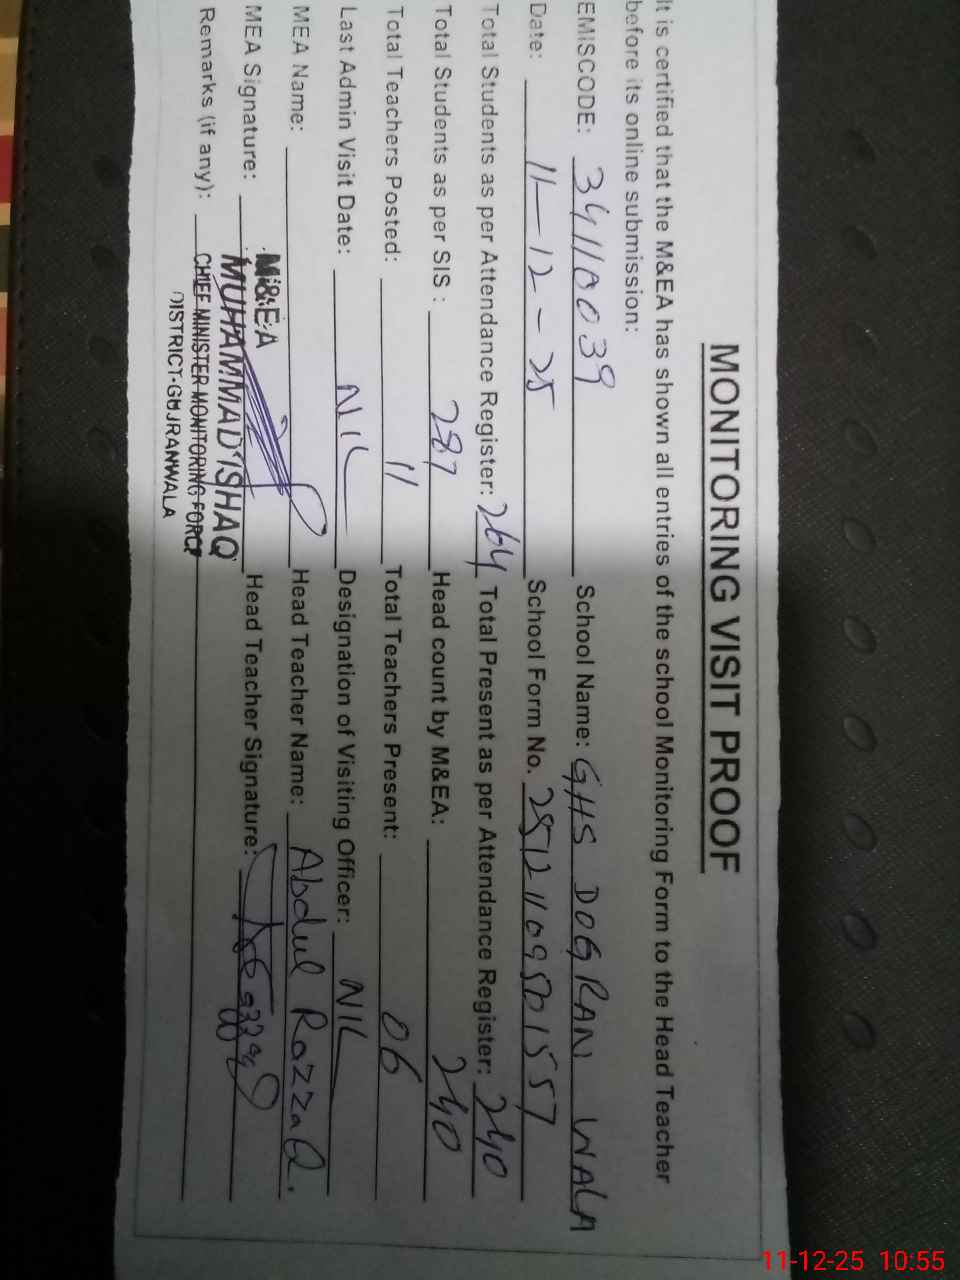 MONITORING VISIT PROOF
It is certified that the M&EA has shown all entries of the school Monitoring Form to the Head Teacher
before its online submission:
EMISCODE: 34110039 School Name: GHS DOGRAN WALA
Date: 11-12-25 School Form No.
Total Students as per Attendance Register: 264 Total Present as per Attendance Register: 240
Total Students as per SIS : 287 Head count by M&EA: 240
Total Teachers Posted: 11 Total Teachers Present: 06
Last Admin Visit Date: NIL Designation of Visiting Officer: NIL
MEA Name: Head Teacher Name: Abdul RazzaQ.
M&EA
MEA Signature: MUHAMMAD ISHAQ Head Teacher Signature:
Remarks (if any): CHIEF MINISTER MONITORING FORCE
DISTRICT-GUJRANWALA
11-12-25 10:55